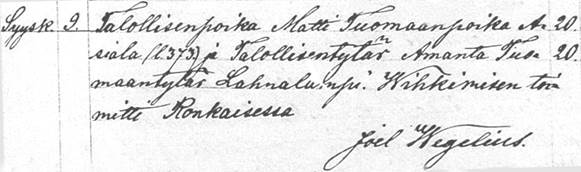 Syysk. 9. Talollisenpoika Matti Tuomaanpoika A- 20.
siala (l. 373) ja Talollisentytär Amanta Tuo- 20.
maantytär Lahnalu: npi. Wihkimisen toi-
mitti Ronkaisessa
Joel Wegelius.